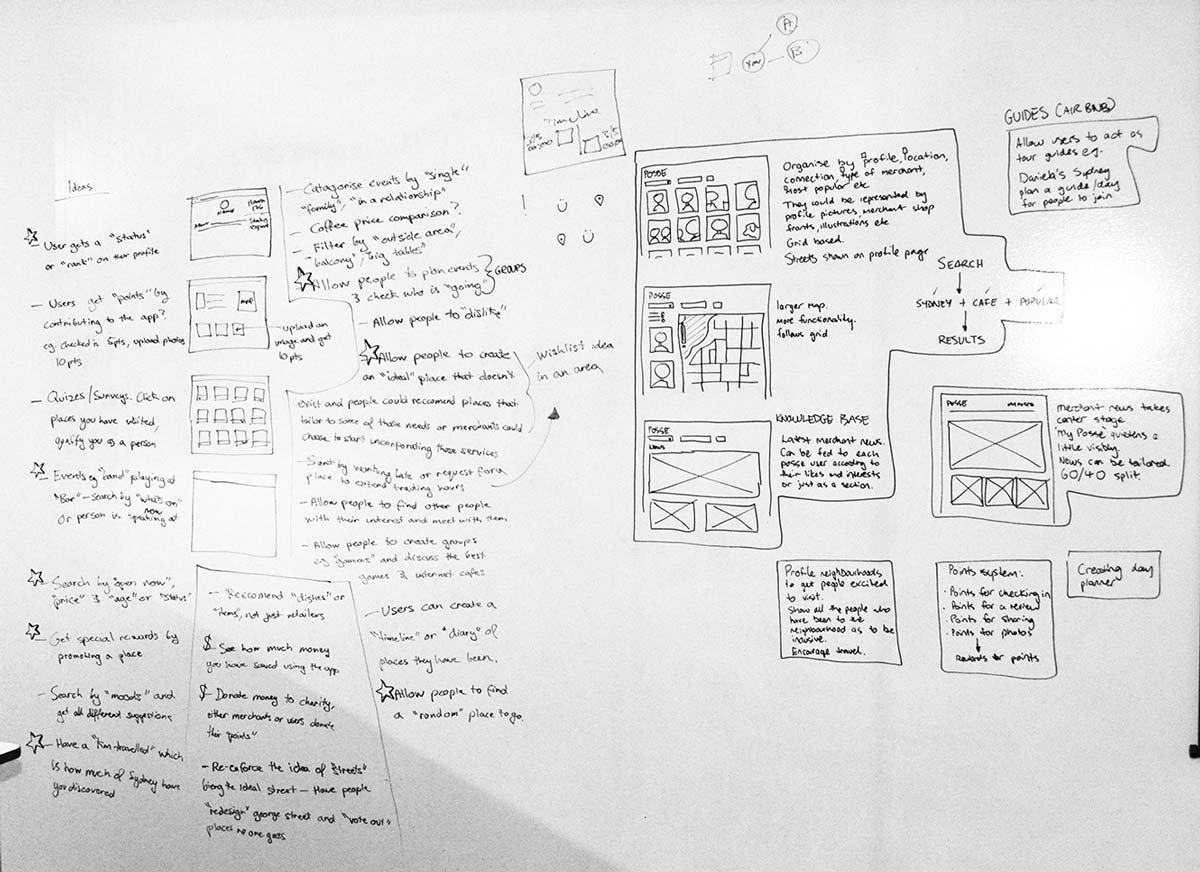 Ideas
User gets a "status"
or "rank" on their profile
– Users get "points" by
contributing to the app?
eg. checked in 5pts, upload photos
10 pts
– Quizes/Surveys. Click on
places you have visited,
qualify you as a person
Events eg "band" playing at
"Bar" – search by "what's on"
now
Or person is speaking at
Search by "open now",
"price" & "age" or "status"
Get special rewards by
promoting a place
Search by "moods" and
get all different suggestions
– Have a "km-travelled" which
is how much of Sydney have
you discovered
Name
upload an
image and get
10 pts
– Catagorise events by "single"
"family", "in a relationship"
– Coffee price comparison?
– Filter by "outside area",
"balcony", "big tables"
Allow people to plan events
& check who is "going"
GROUPS
– Allow people to "dislike"
Allow people to create
an "ideal" place that doesn't
exist and people could reccomend places that
tailor to some of those needs or merchants could
choose to start incorporating those services
place to extend trading hours
Wishlist idea
in an area
– Allow people to find other people
with their interest and meet with them
– Allow people to create groups
eg "gamers" and discuss the best
games & internet cafes
– Reccomend "dishes" or
"items", not just retailers
$– See how much money
you have saved using the app
$– Donate money to charity,
other merchants or users donate
their "points"
– Re-enforce the idea of "Streets"
being the ideal street – Have people
"redesign" george street and "vote out"
places no one goes
– Users can create a
"timeline" or "diary" of
places they have been.
Allow people to find
a "random" place to go.
Timeline
!
A
You
B
POSSE
Organise by profile, location,
connection, type of merchant,
Most popular etc
They could be represented by
profile pictures, merchant shop
fronts, illustrations etc
Grid based.
Streets shown on profile page
POSSE
larger map.
more functionality.
follows grid
POSSE
NEWS
KNOWLEDGE BASE
Latest merchant news.
Can be fed to each
posse user according to
their likes and interests
or just as a section.
SEARCH
SYDNEY + CAFE + POPULAR
RESULTS
GUIDES (AIR BNB)
Allow users to act as
tour guides eg.
Daniela's Sydney
plan a guide/day
for people to join
POSSE
merchant news takes
center stage
'My Posse' quietens a
little visibly.
News can be tailored
60/40 split.
Profile neighbourhoods
to get people excited
to visit.
Show all the people who
have been to the
neighbourhood as to be
inclusive.
Encourage travel.
Points system:
· Points for checking in
· Points for a review
· Points for sharing
· Points for photos
Rewards for points
Creating day
planner